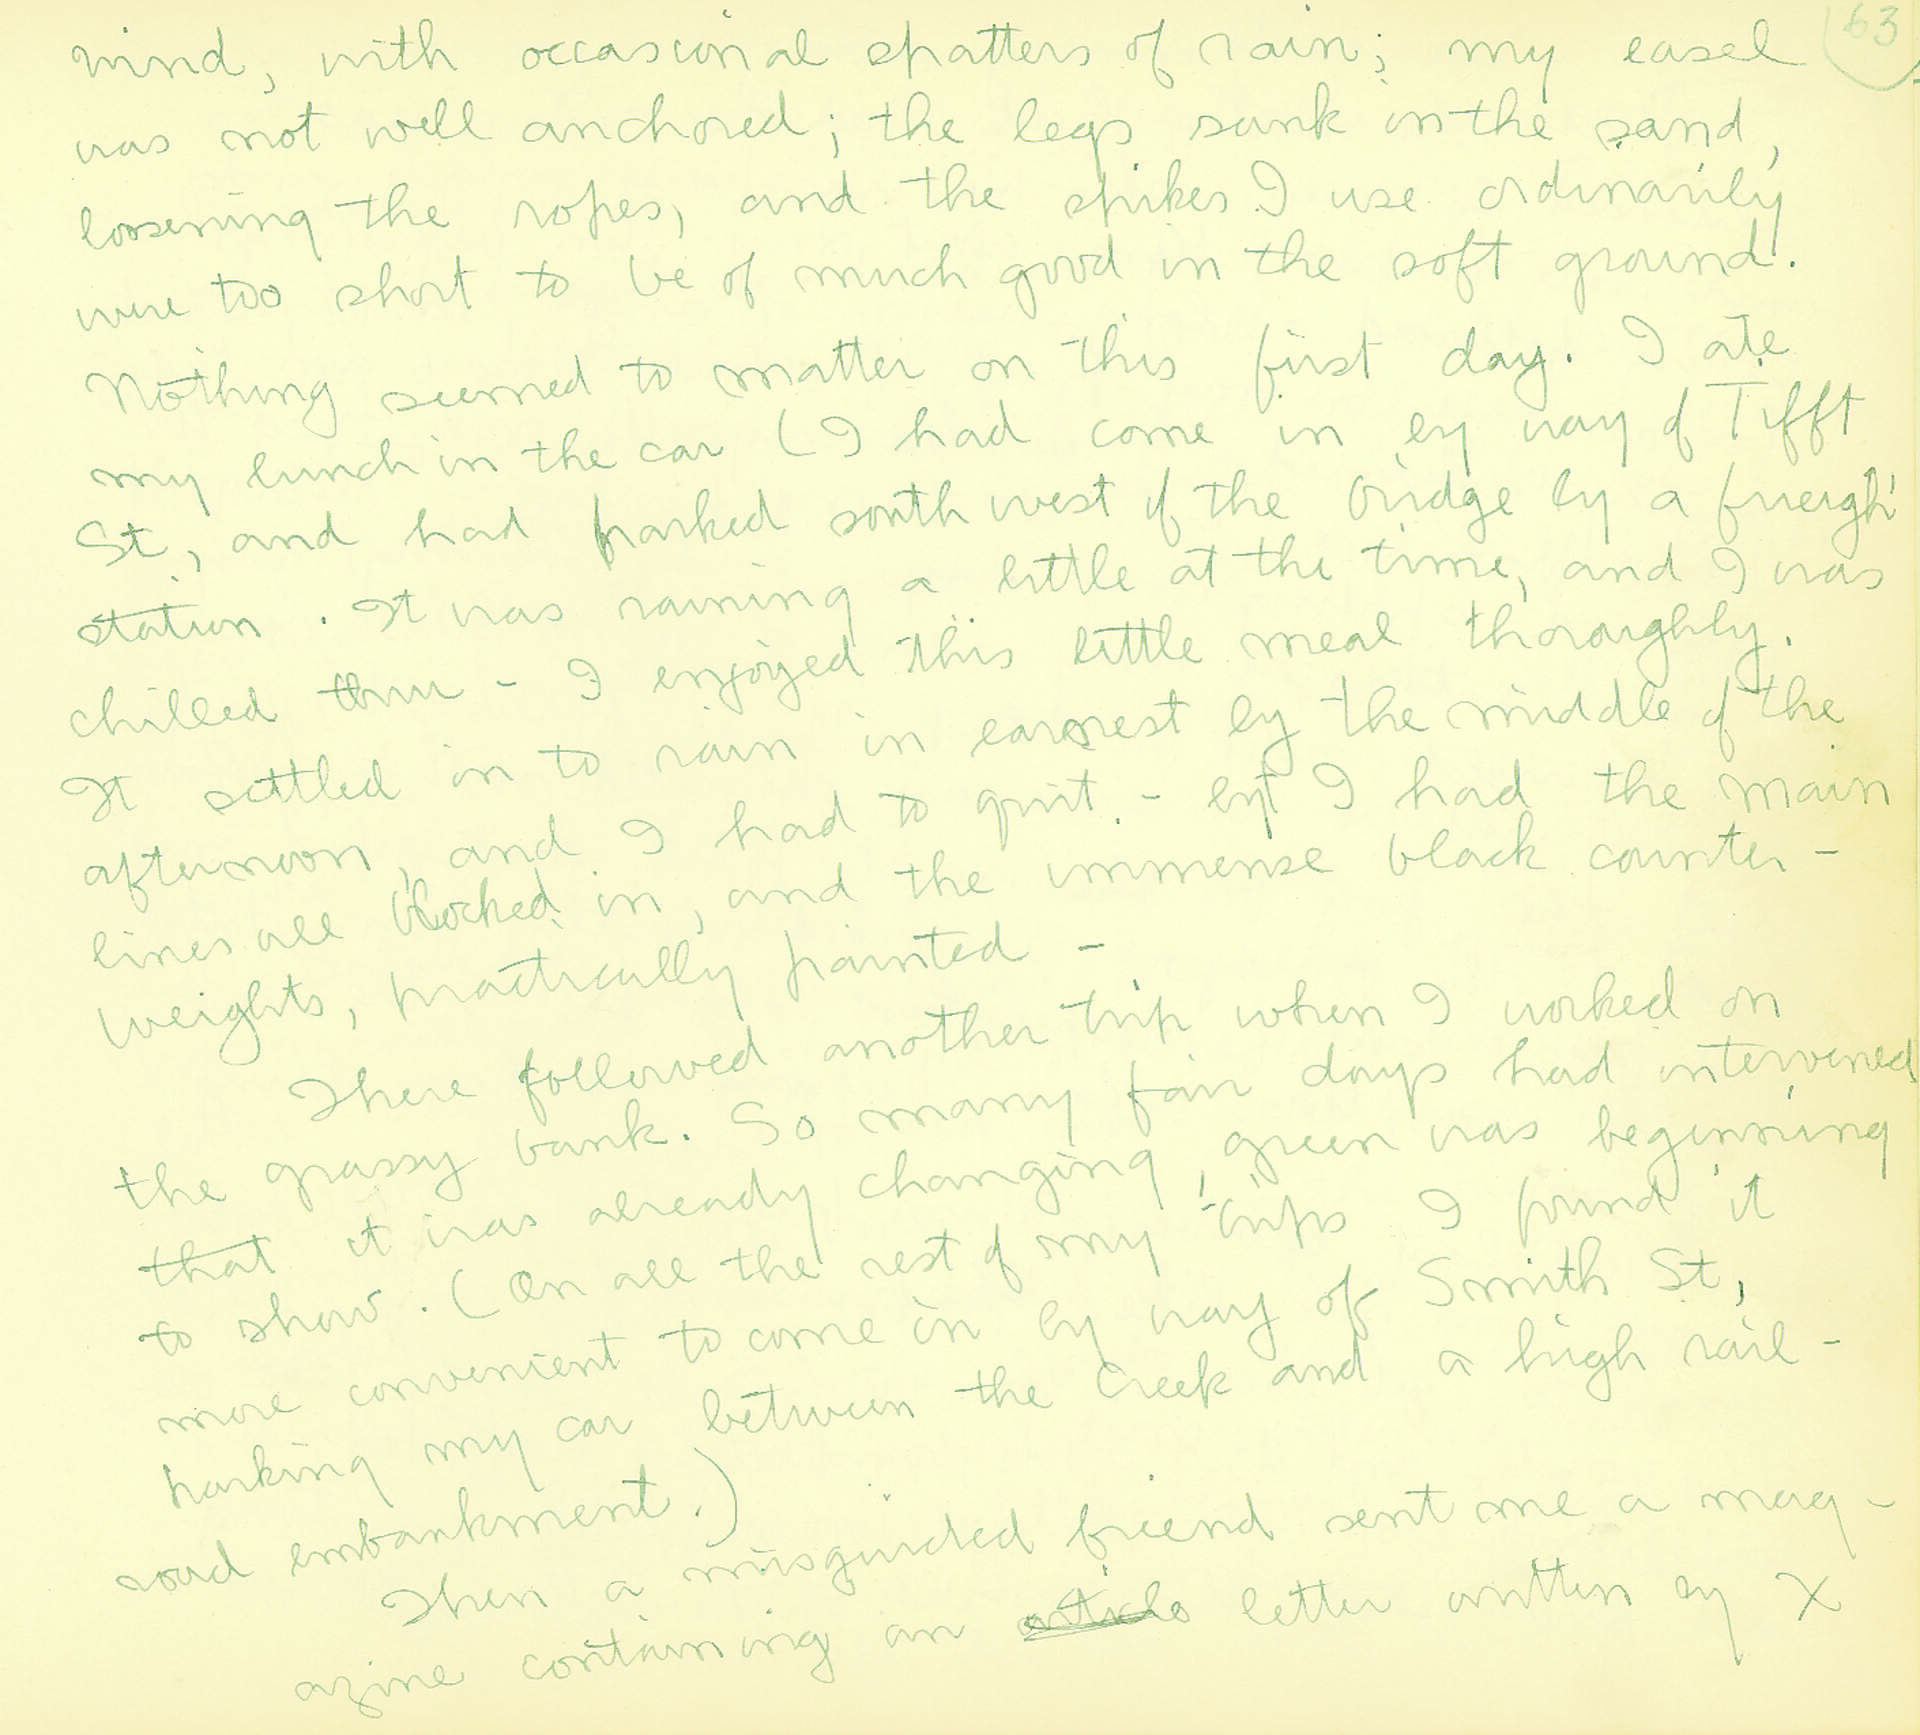 63
wind, with occasional spatters of rain; my easel
was not well anchored; the legs sank in the sand,
loosening the ropes, and the spikes I use ordinarily
were too short to be of much good in the soft ground.
Nothing seemed to matter on this first day. I ate
my lunch in the car (I had come in by way of Tifft
St., and had parked south west of the bridge by a freight
station. It was raining a little at the time, and I was
chilled thru - I enjoyed this little meal thoroughly.
It settled in to rain in earnest by the middle of the
afternoon, and I had to quit. - byt I had the main
lines all blocked in, and the immense black counter-
weights, practically painted -
There followed another trip when I worked on
the grassy bank. So many fair days had intervened
that it was already changing, green was beginning
to show. (On all the rest of my trips I found it
more convenient to come in by way of Smith St,
parking my car between the Creek and a high rail-
road embankment.)
Then a misguided friend sent me a mag-
azine containing an article letter written by X